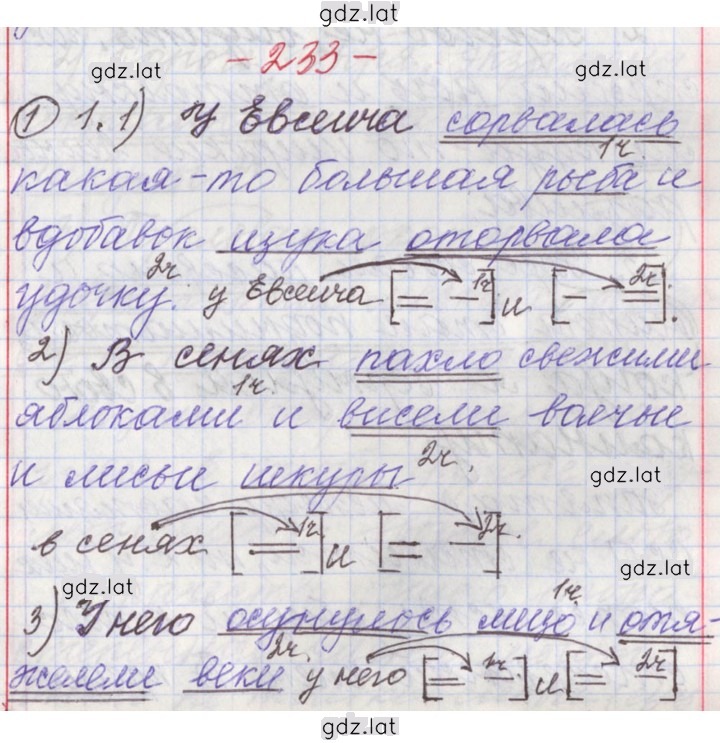 gdz.lat
- 233 -
gdz.lat gdz.lat
① 1. 1) У Евсеича сорвалась
1ч.
какая-то большая рыба и
вдобавок щука оторвала
2ч
удочку. у Евсеича [= -1ч] и [- =2ч].
2) В сенях пахло свежими
1ч.
яблоками и висели волчьи
2ч.
и лисьи шкуры gdz.lat
в сенях [= 1ч] и [= -2ч].
gdz.lat gdz.lat
1ч.
3) У него осунулось лицо и отя-
2ч.
желели веки у него [= -1ч] и [= -2ч]
gdz.lat